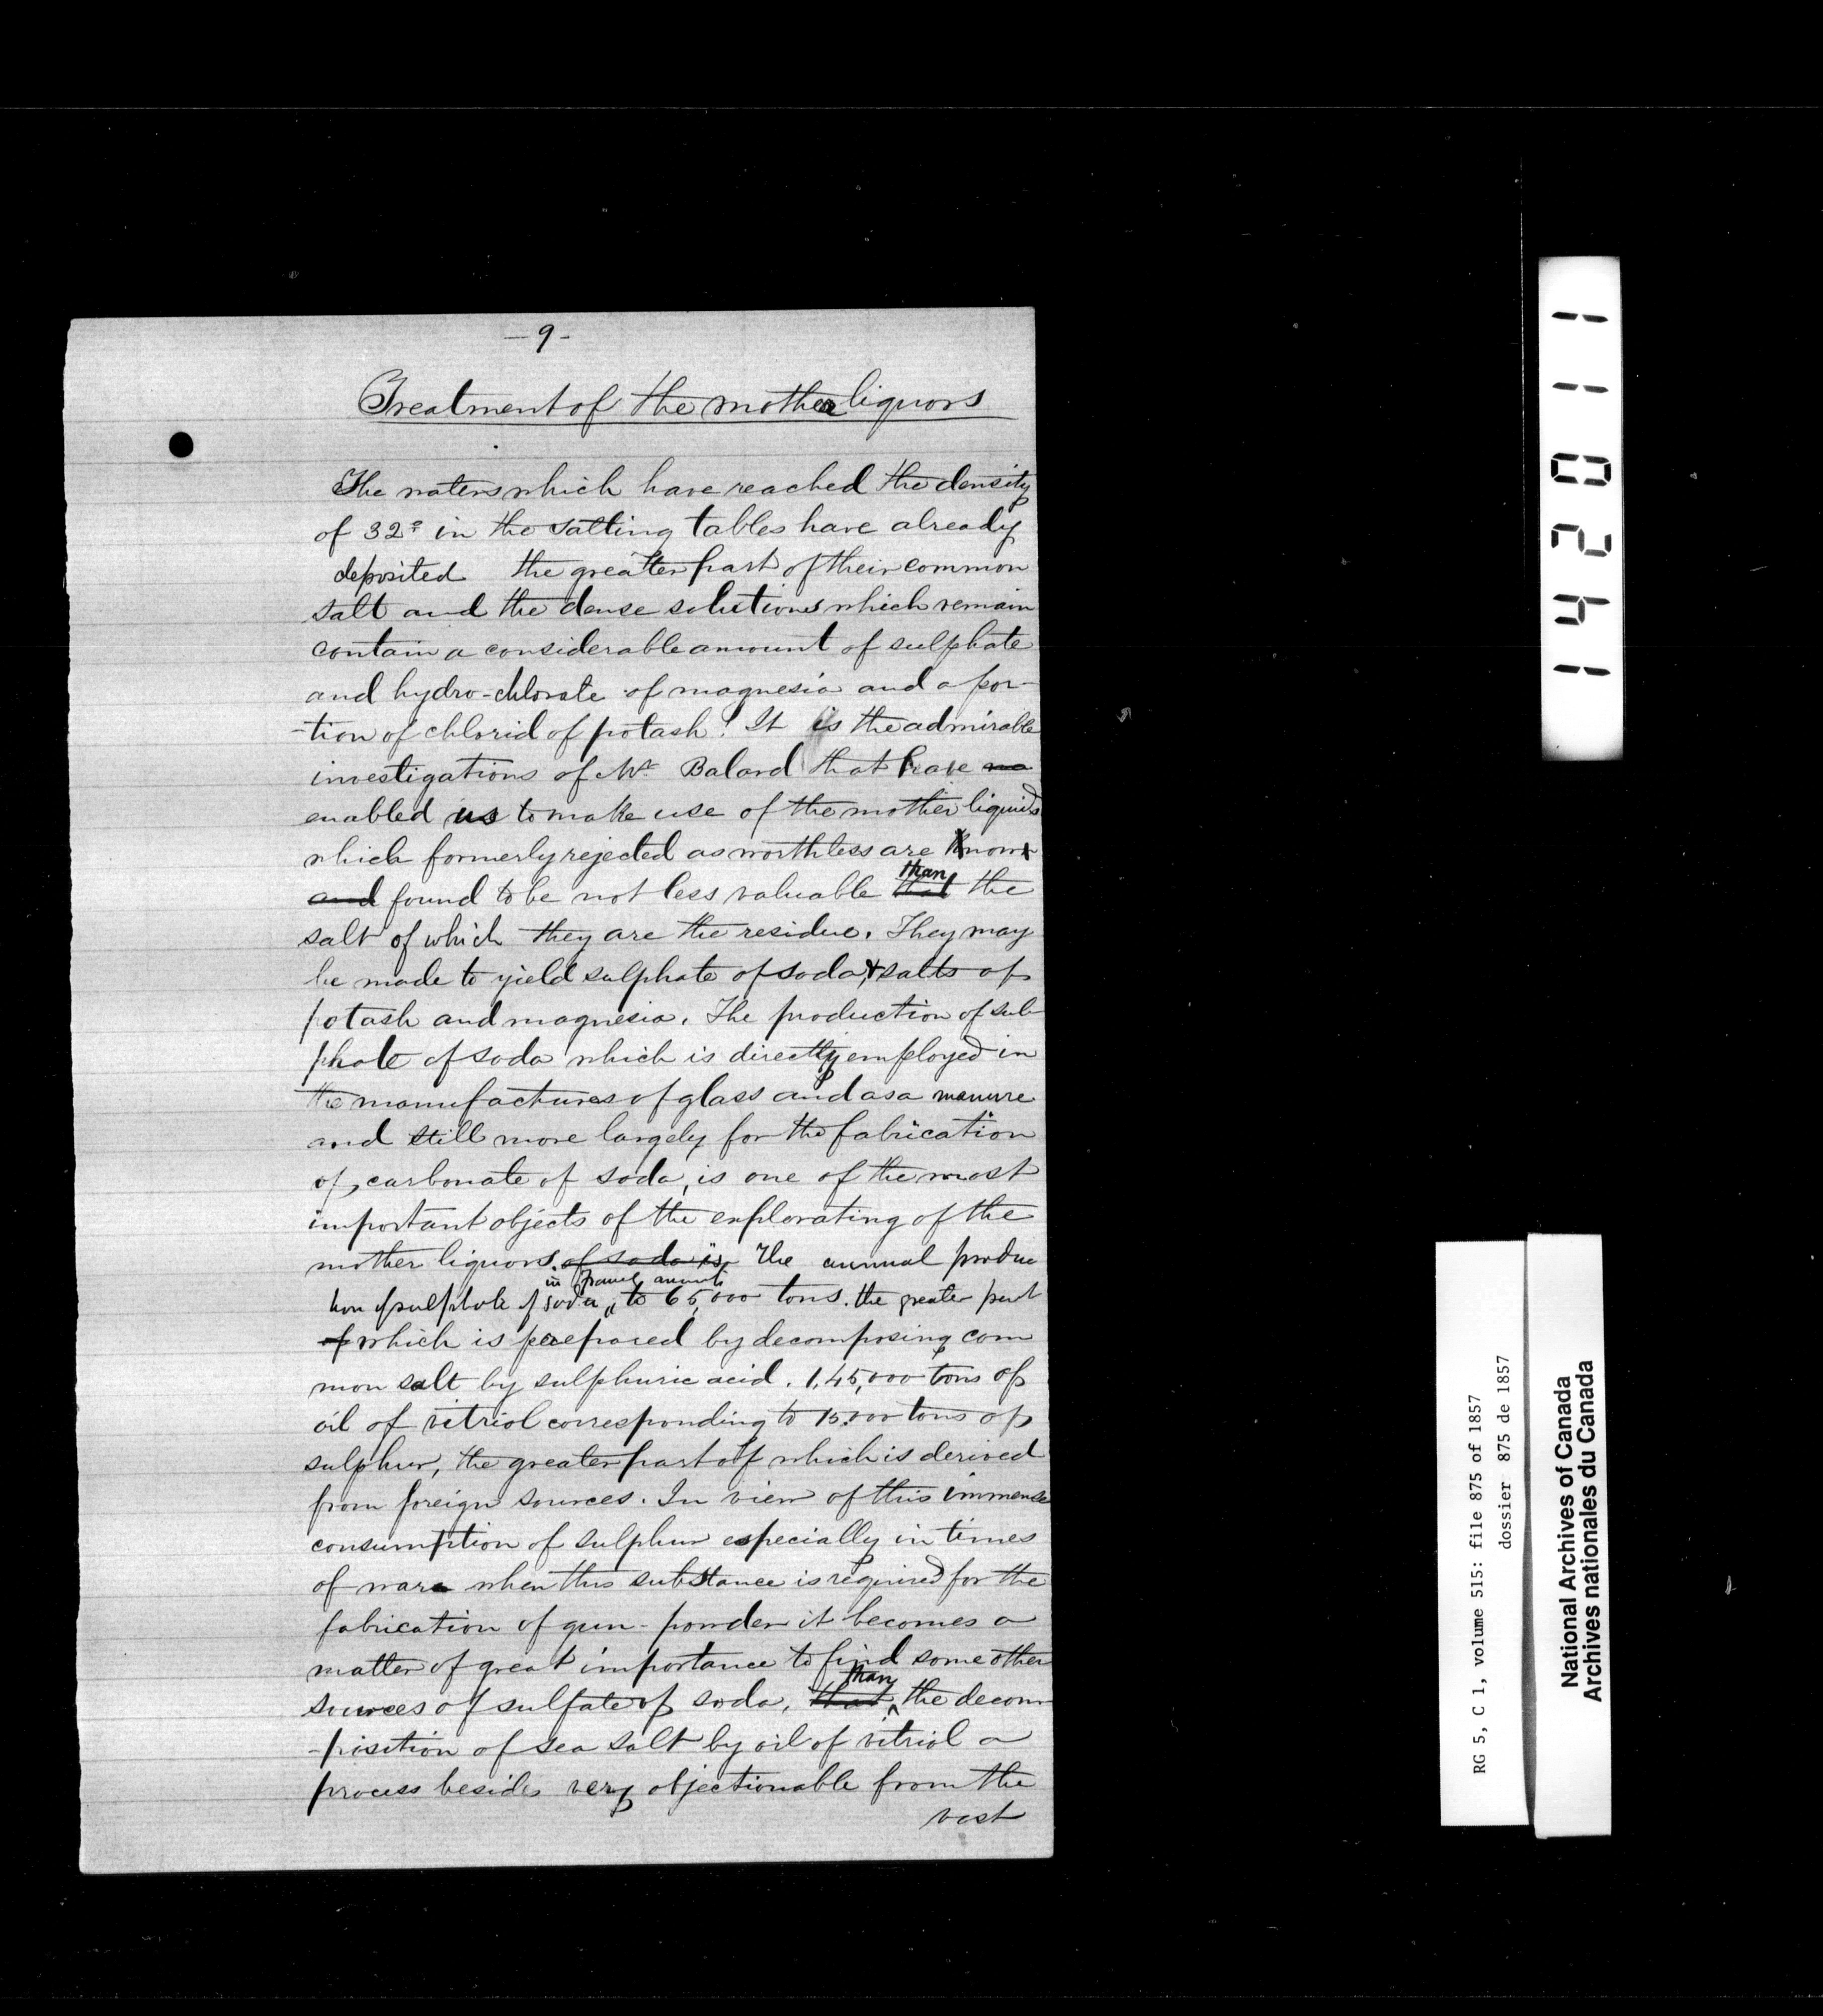 - 9 -
Treatment of the mother liquors
The waters which have reached the density
of 32° in the salting tables have already
deposited the greater part of their common
salt and the dense solutions which remain
contain a considerable amount of sulphate
and hydro-chlorate of magnesia and a por-
-tion of chlorid of potash! It is the admirable
investigations of Mr Balard that have
enabled us to make use of the mother liquids
which formerly rejected as worthless are now
and found to be not less valuable that than the
salt of which they are the residue. They may
be made to yield sulphate of soda, & salts of
potash and magnesia. The production of sul-
phate of soda which is directly employed in
the manufactures of glass and as a manure
and still more largely for the fabrication
of carbonate of soda, is one of the most
important objects of the explorating of the
mother liquors. of soda is, The annual produc
tion of sulphate of soda in France amounts to 65,000 tons. the greater part
of which is prepared by decomposing com
mon salt by sulphuric acid. 1,45,000 tons of
oil of vitriol corresponding to 15.000 tons of
sulphur, the greater part of which is derived
from foreign sources. In view of this immense
consumption of sulphur especially in times
of war when this substance is required for the
fabrication of gun-powder it becomes a
matter of great importance to find some other
sources of sulfate of soda, that than the decom
-position of sea salt by oil of vitriol a
process besides very objectionable from the
vast
142011
RG 5, C 1, volume 515: file 875 of 1857
dossier 875 de 1857
National Archives of Canada
Archives nationales du Canada